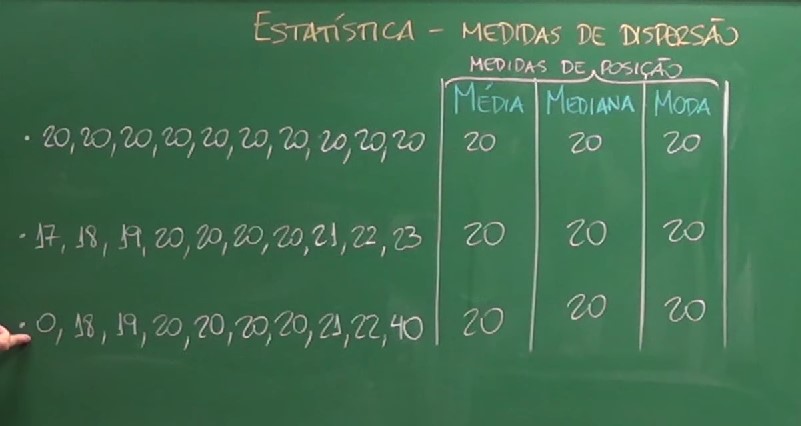 ESTATÍSTICA - MEDIDAS DE DISPERSÃO
MEDIDAS DE POSIÇÃO
MÉDIA MEDIANA MODA
· 20, 20, 20, 20, 20, 20, 20, 20, 20, 20 20 20 20
· 17, 18, 19, 20, 20, 20, 20, 21, 22, 23 20 20 20
· 0, 18, 19, 20, 20, 20, 20, 21, 22, 40 20 20 20